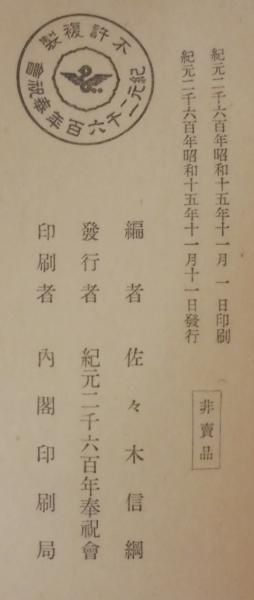 紀元二千六百年昭和十五年十一月一日印刷
紀元二千六百年昭和十五年十一月十一日發行
非賣品
編者 佐々木信綱
發行者 紀元二千六百年奉祝會
印刷者 內閣印刷局
不許複製
紀元二千六百年奉祝會